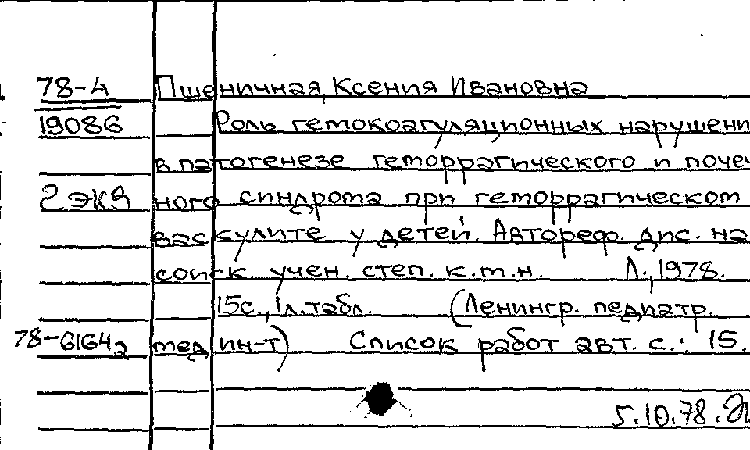 78-4 Пшеничная Ксения Ивановна
19086 Роль гемокоагуляционных нарушени
в патогенезе геморрагического и почеч
2 экз ного синдрома при геморрагическом
васкулите у детей. Автореф. дис. на
соиск. учен. степ. к.м.н. Л., 1978.
15с., 1л. табл. (Ленингр. педиатр.
78-61642 мед ин-т) Список работ авт. с.: 15.
5.10.78.